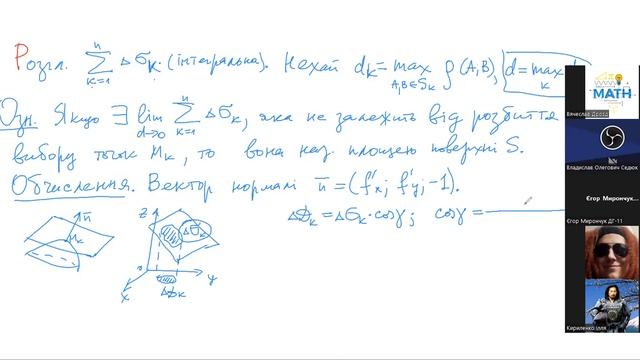 Розгл. $\sum_{k=1}^{n} \Delta\sigma_k$. (інтегральна). Нехай $d_k = \max_{A,B \in S_k} \rho(A,B)$, $d = \max_k d$
Озн. Якщо $\exists \lim_{d \to 0} \sum_{k=1}^{n} \Delta\sigma_k$, яка не залежить від розбиття
вибору точок $M_k$, то вона наз. площею поверхні S.
Обчислення. Вектор нормалі $\bar{n} = (f'_x; f'_y; -1)$.
$\Delta\phi_k = \Delta\sigma_k \cdot \cos\gamma$; $\cos\gamma =$
$\bar{n}$
$M_k$
z
$\Delta\sigma_k$
0
y
x
$\Delta\phi_k$
MATH
Вячеслав Дрозд
Владислав Олегович Седюк
Єгор Мирончук...
Єгор Мирончук ДГ-11
Кириленко Ілля